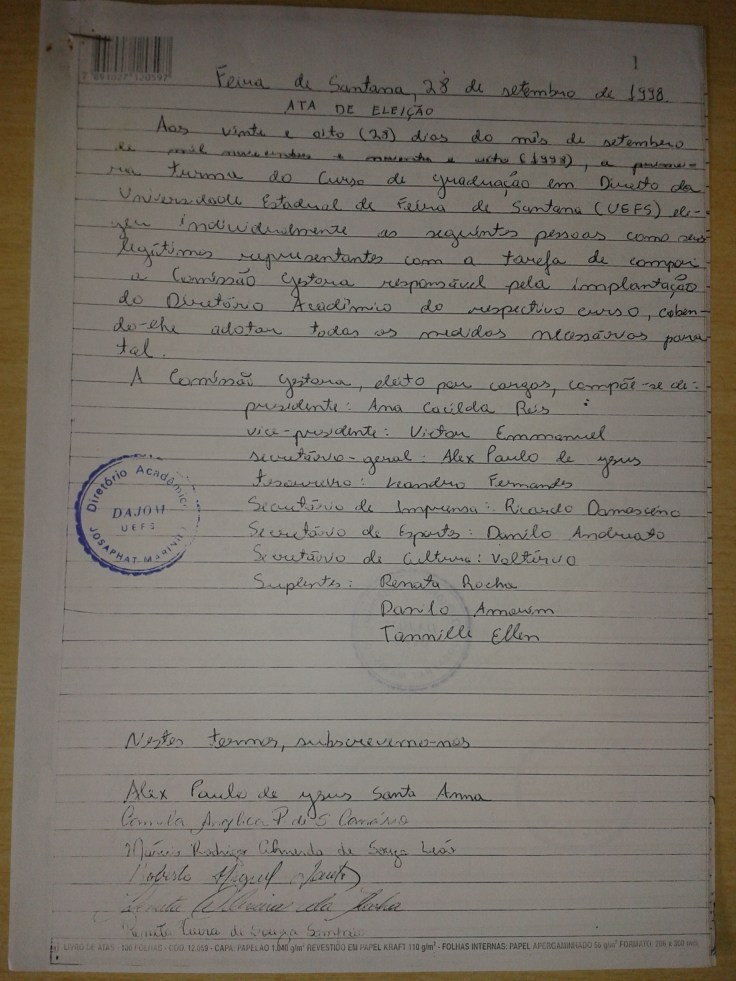 1
Feira de Santana, 28 de setembro de 1998.
ATA DE ELEIÇÃO
Aos vinte e oito (28) dias do mês de setembro
de mil novecentos e noventa e oito (1998), a primei-
ra turma do Curso de graduação em Direito da
Universidade Estadual de Feira de Santana (UEFS) ele-
geu individualmente as seguintes pessoas como seus
legítimos representantes com a tarefa de compor
a Comissão Gestora responsável pela implantação
do Diretório Acadêmico do respectivo curso, caben-
do-lhe adotar todas as medidas necessárias para
tal.
A Comissão Gestora, eleita por cargos, compõe-se de:
presidente: Ana Cacilda Reis
vice-presidente: Victor Emmanuel
secretário-geral: Alex Paulo de Jesus
tesoureiro: Leandro Fernandes
Secretário de Imprensa: Ricardo Damasceno
Secretário de Esportes: Danilo Andreato
Secretário de Cultura: Voltérvo
Suplentes: Renata Rocha
Danilo Amorim
Tannille Ellen
Diretório Acadêmico
DAJOM
UEFS
JOSAPHAT MARINHO
Nestes termos, subscrevemo-nos
Alex Paulo de Jesus Santa Anna
Camila Angélica P. de S.
Márcio Rodrigo Almeida de Souza Leão
Roberto Miguel
da Rocha
de Souza
LIVRO DE ATAS - 100 FOLHAS - COD. 12.059 - CAPA: PAPELÃO 1.040 g/m² REVESTIDO EM PAPEL KRAFT 110 g/m² - FOLHAS INTERNAS: PAPEL APERGAMINHADO 56 g/m² FORMATO: 206 x 300 mm